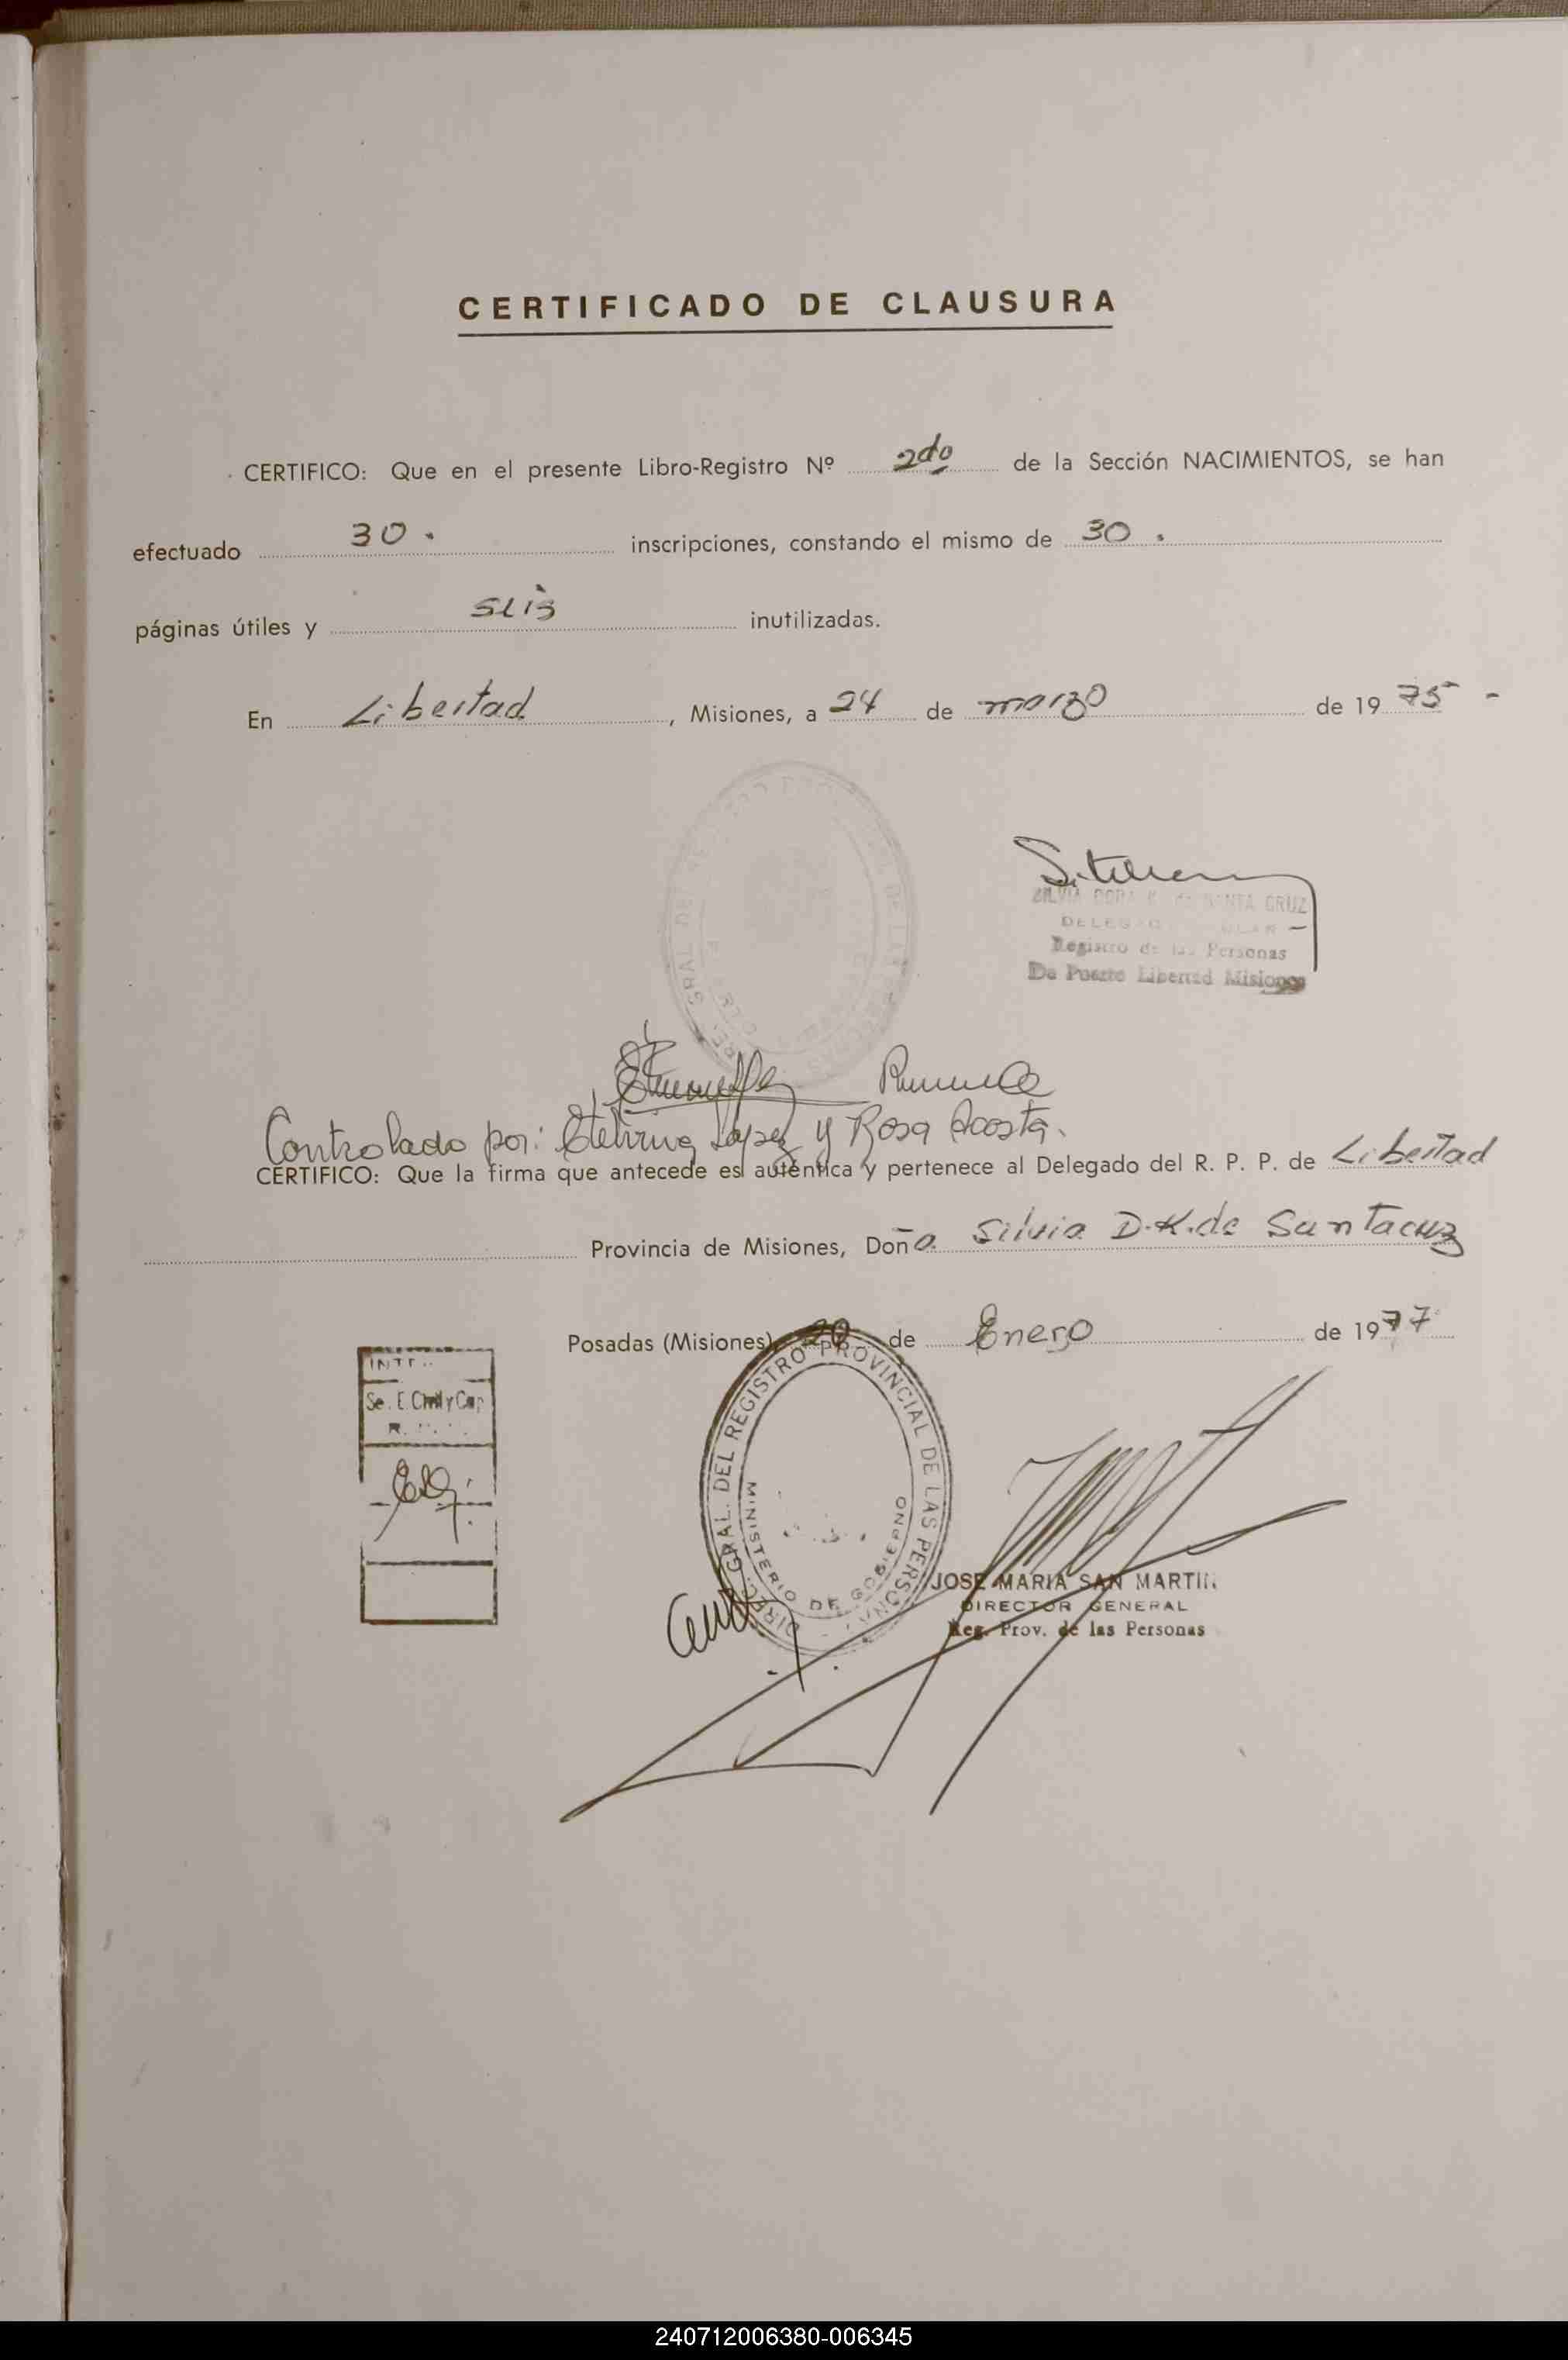 CERTIFICADO DE CLAUSURA
CERTIFICO: Que en el presente Libro-Registro Nº 2do de la Sección NACIMIENTOS, se han
efectuado 30. inscripciones, constando el mismo de 30.
páginas útiles y seis inutilizadas.
En Libertad, Misiones, a 24 de marzo de 1975 -
SILVIA DORA K. de SANTA CRUZ
Registro de las Personas
De Puerto Libertad Misiones
Controlado por: López y Rosa Acosta.
CERTIFICO: Que la firma que antecede es auténtica y pertenece al Delegado del R. P. P. de Libertad
Provincia de Misiones, Doña Silvia D.K. de Santacruz
Posadas (Misiones), 20 de Enero de 1977
Se. E. Civil y Cap
DIREC. GRAL. DEL REGISTRO PROVINCIAL DE LAS PERSONAS
MINISTERIO DE GOBIERNO
JOSE MARIA SAN MARTIN
DIRECTOR GENERAL
Reg. Prov. de las Personas
240712006380-006345